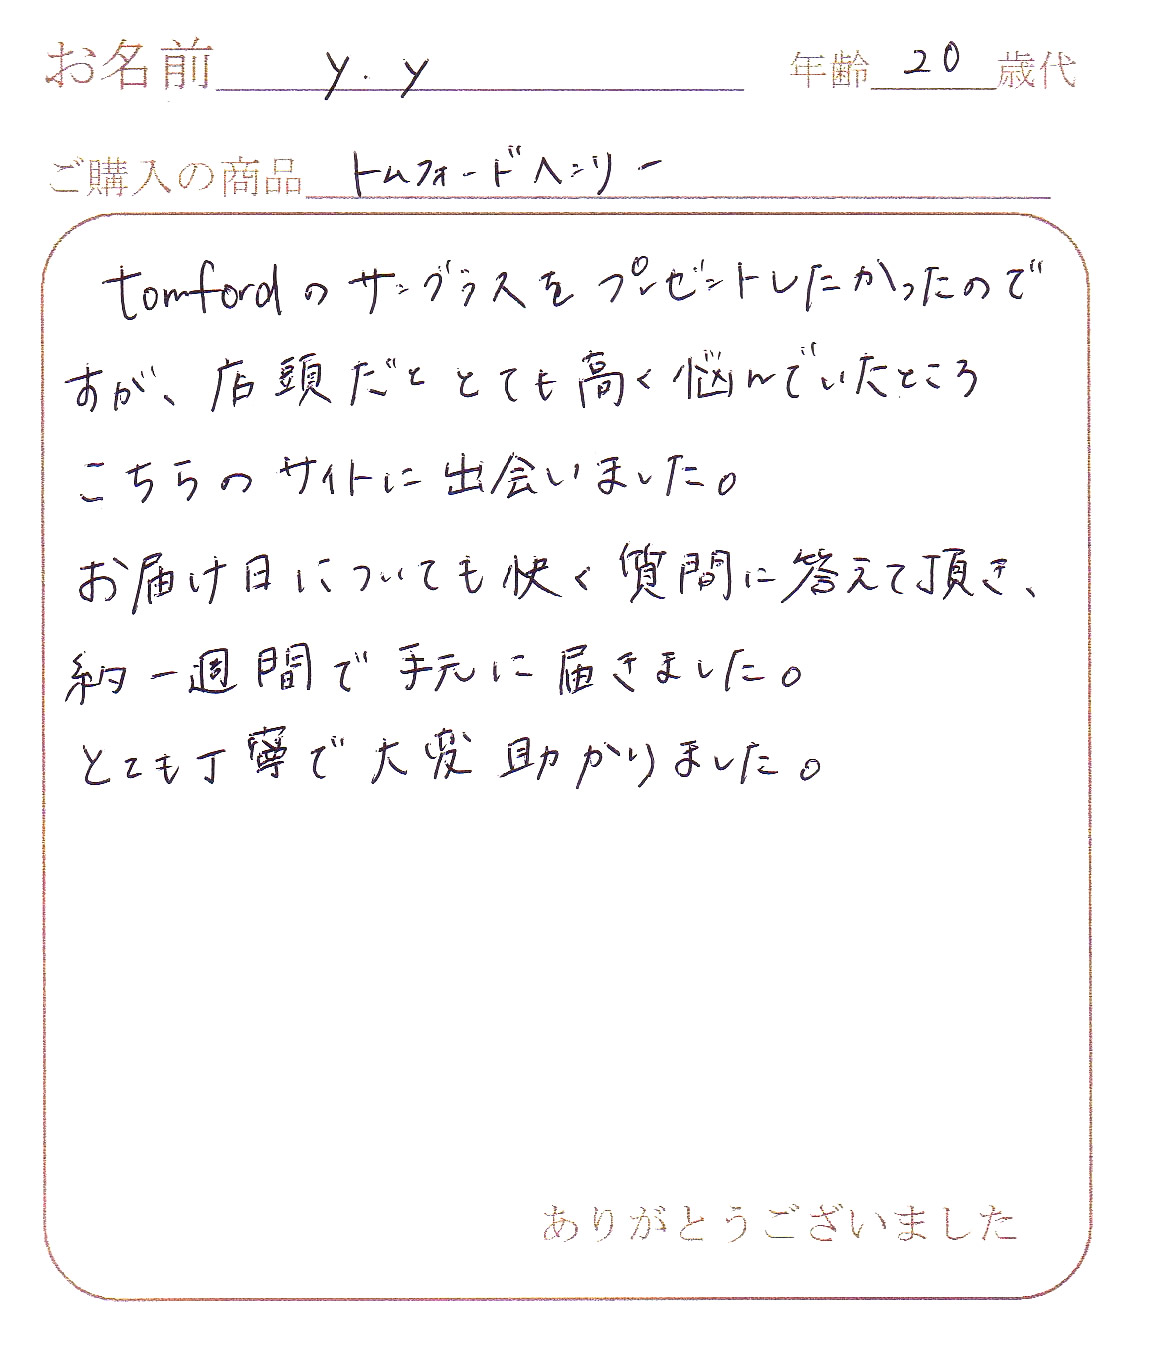 お名前 y.y 年齢 20 歳代
ご購入の商品 トムフォードヘンリー
tomfordのサングラスをプレゼントしたかったので
すが、店頭だととても高く悩んでいたところ
こちらのサイトに出会いました。
お届け日についても快く質問に答えて頂き、
約一週間で手元に届きました。
とても丁寧で大変助かりました。
ありがとうございました